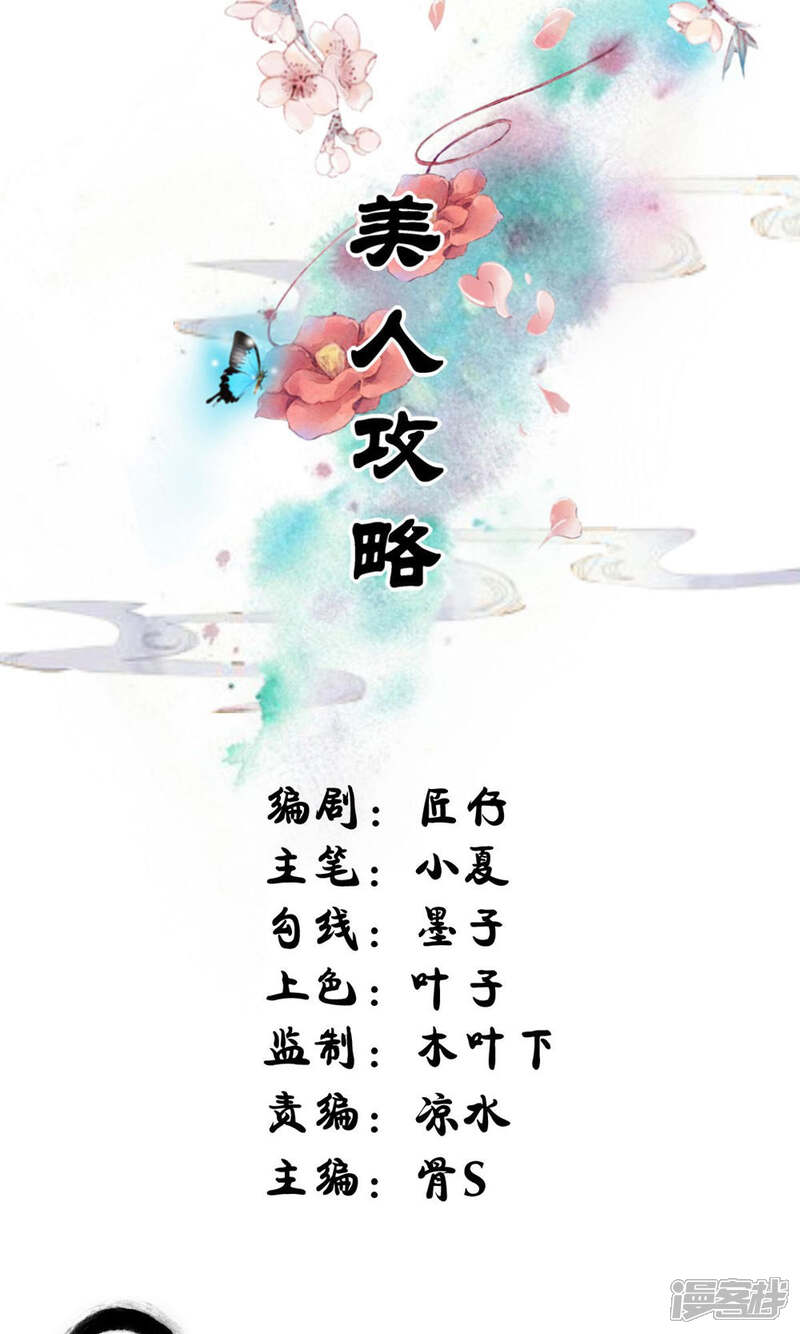 美人攻略
编剧：匠仔
主笔：小夏
勾线：墨子
上色：叶子
监制：木叶下
责编：凉水
主编：骨S
漫客栈